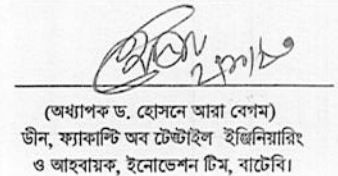 (অধ্যাপক ড. হোসনে আরা বেগম)
ডীন, ফ্যাকাল্টি অব টেক্সটাইল ইঞ্জিনিয়ারিং
ও আহবায়ক, ইনোভেশন টিম, বাটেবি।